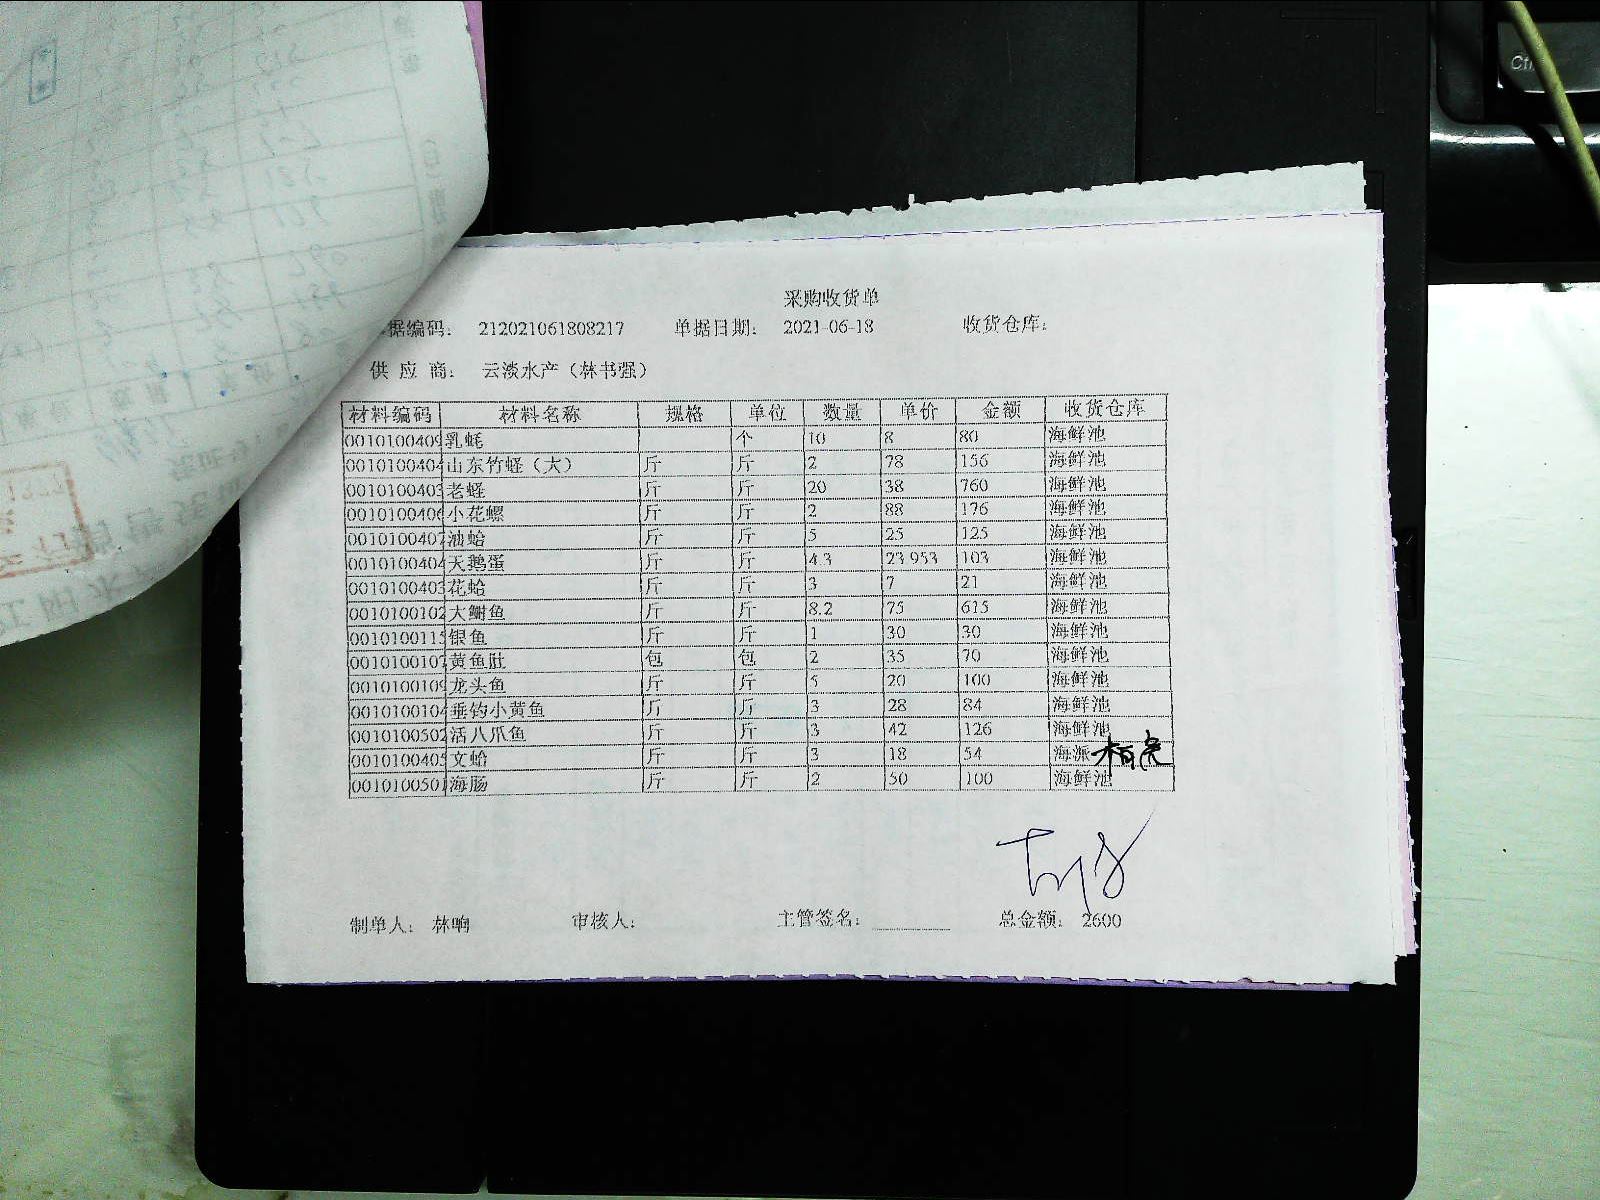 采购收货单
据编码： 212021061808217 单据日期： 2021-06-18 收货仓库：
供 应 商： 云淡水产（林书强）
材料编码 材料名称 规格 单位 数量 单价 金额 收货仓库
0010100409 乳蚝 个 10 8 80 海鲜池
0010100404 山东竹蛏（大） 斤 斤 2 78 156 海鲜池
0010100403 老蛏 斤 斤 20 38 760 海鲜池
0010100406 小花螺 斤 斤 2 88 176 海鲜池
0010100407 油蛤 斤 斤 5 25 125 海鲜池
0010100404 天鹅蛋 斤 斤 4.3 23.953 103 海鲜池
0010100403 花蛤 斤 斤 3 7 21 海鲜池
0010100102 大鮒鱼 斤 斤 8.2 75 615 海鲜池
0010100115 银鱼 斤 斤 1 30 30 海鲜池
0010100107 黄鱼肚 包 包 2 35 70 海鲜池
0010100109 龙头鱼 斤 斤 5 20 100 海鲜池
0010100104 垂钓小黄鱼 斤 斤 3 28 84 海鲜池
0010100502 活八爪鱼 斤 斤 3 42 126 海鲜池
0010100405 文蛤 斤 斤 3 18 54 海派
0010100501 海肠 斤 斤 2 50 100 海鲜池
制单人： 林响 审核人： 主管签名： 总金额： 2600
Ctrl